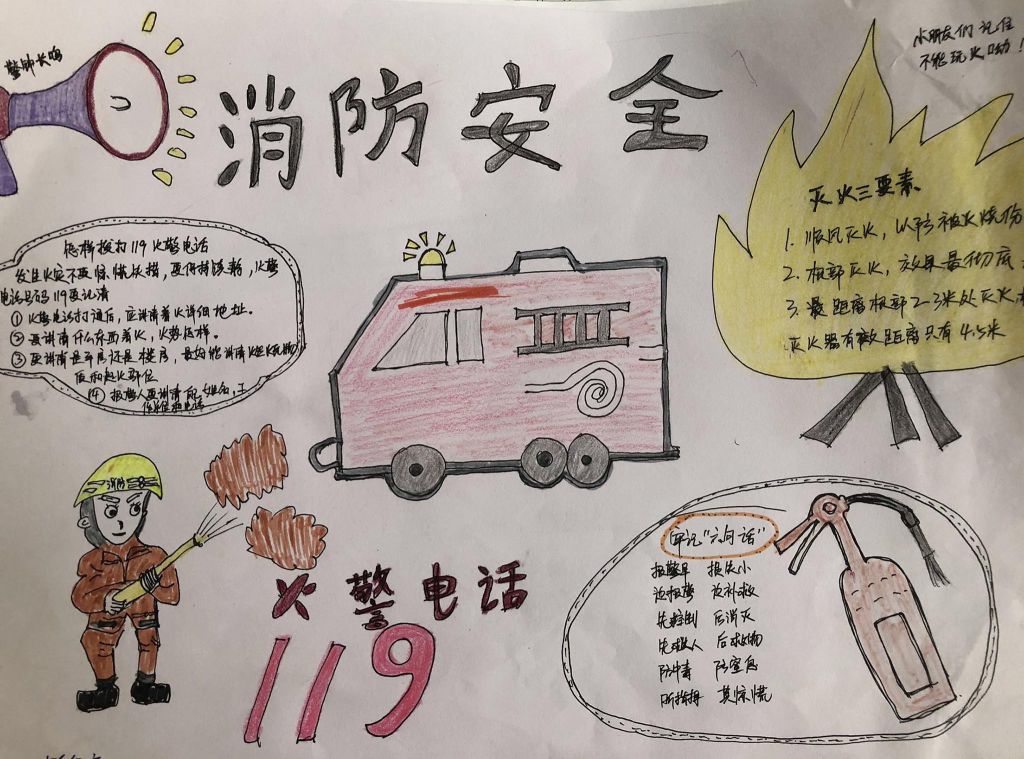 警钟长鸣
消防安全
小朋友们记住
不能玩火呦！
怎样拨打119火警电话
发生火灾不要惊慌失措，要保持镇静，火警
电话号码119要记清
①火警电话打通后，应讲清着火详细地址。
②要讲清什么东西着火，火势怎样。
③要讲清是平房还是楼房，最好能讲清火起
和起火部位
④报警人要讲清 姓名，工
电话
灭火三要素
1.顺风灭火，以防被火烧伤
2.根部灭火，效果最彻底
3.最距离根部2-3米处灭火
灭火器有效距离只有4.5米
消防
火警电话
119
牢记"六句话"
报警早 损失小
边报警 边补救
先控制 后消灭
先救人 后救物
防中毒 防窒息
听指挥 莫惊慌